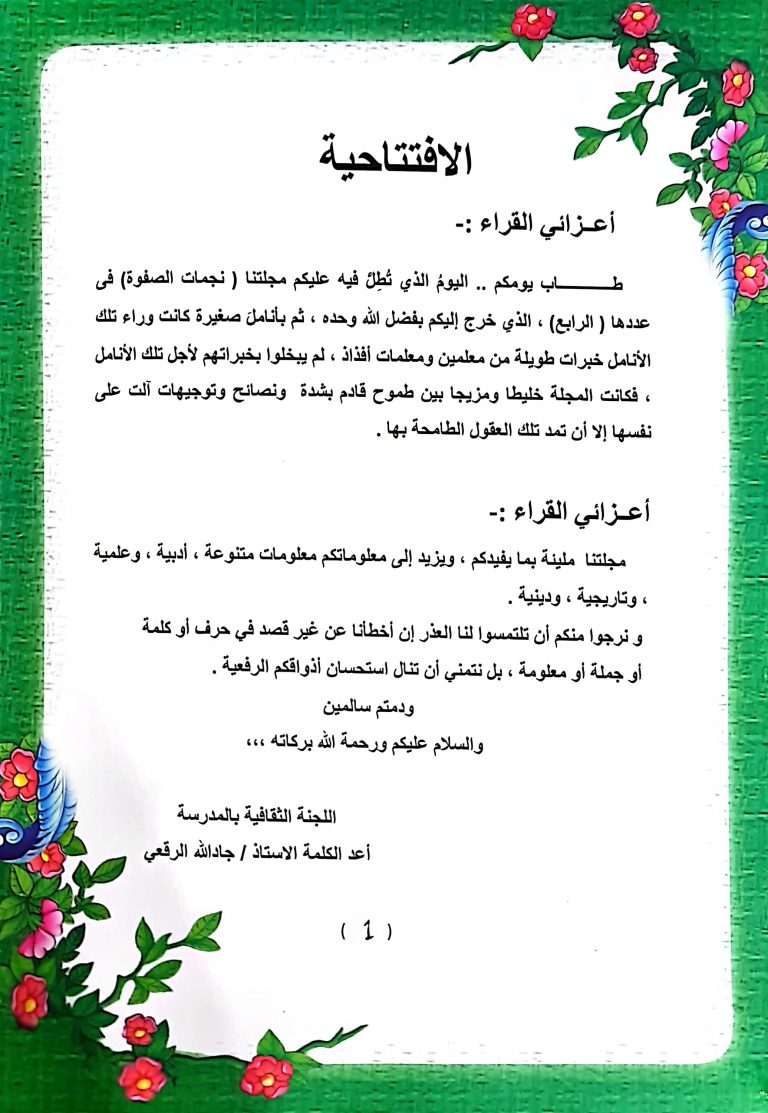 الافتتاحية
أعــزائي القراء :-
طــــــــاب يومكم .. اليومُ الذي تُطِلَّ فيه عليكم مجلتنا ( نجمات الصفوة) فى
عددها ( الرابع) ، الذي خرج إليكم بفضل الله وحده ، ثم بأناملَ صغيرة كانت وراء تلك
الأنامل خبرات طويلة من معلمين ومعلمات أفذاذ ، لم يبخلوا بخبراتهم لأجل تلك الأنامل
، فكانت المجلة خليطا ومزيجا بين طموح قادم بشدة ونصائح وتوجيهات آلت على
نفسها إلا أن تمد تلك العقول الطامحة بها .
أعــزائي القراء :-
مجلتنا مليئة بما يفيدكم ، ويزيد إلى معلوماتكم معلومات متنوعة ، أدبية ، وعلمية
، وتاريجية ، ودينية .
و نرجوا منكم أن تلتمسوا لنا العذر إن أخطأنا عن غير قصد في حرف أو كلمة
أو جملة أو معلومة ، بل نتمني أن تنال استحسان أذواقكم الرفعية .
ودمتم سالمين
والسلام عليكم ورحمة الله بركاته ،،،
اللجنة الثقافية بالمدرسة
أعد الكلمة الاستاذ / جادالله الرقعي
( 1 )